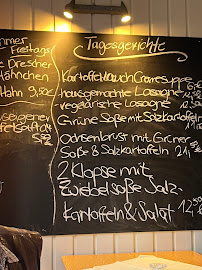 mmer
Freitags
Drescher
Hähnchen
Hahn 9,50€
Tagesgerichte
Kartoffel Lauch Cremesuppe
Hausgemachte Lasagne
vegetarische Lasagne
Grüne Soße mit Salzkartoffeln
Ochsenbrust mit Grüner
Soße & Salzkartoffeln
2 Klopse mit
Zwiebelsoße Salz-
Kartoffeln & Salat 12,50